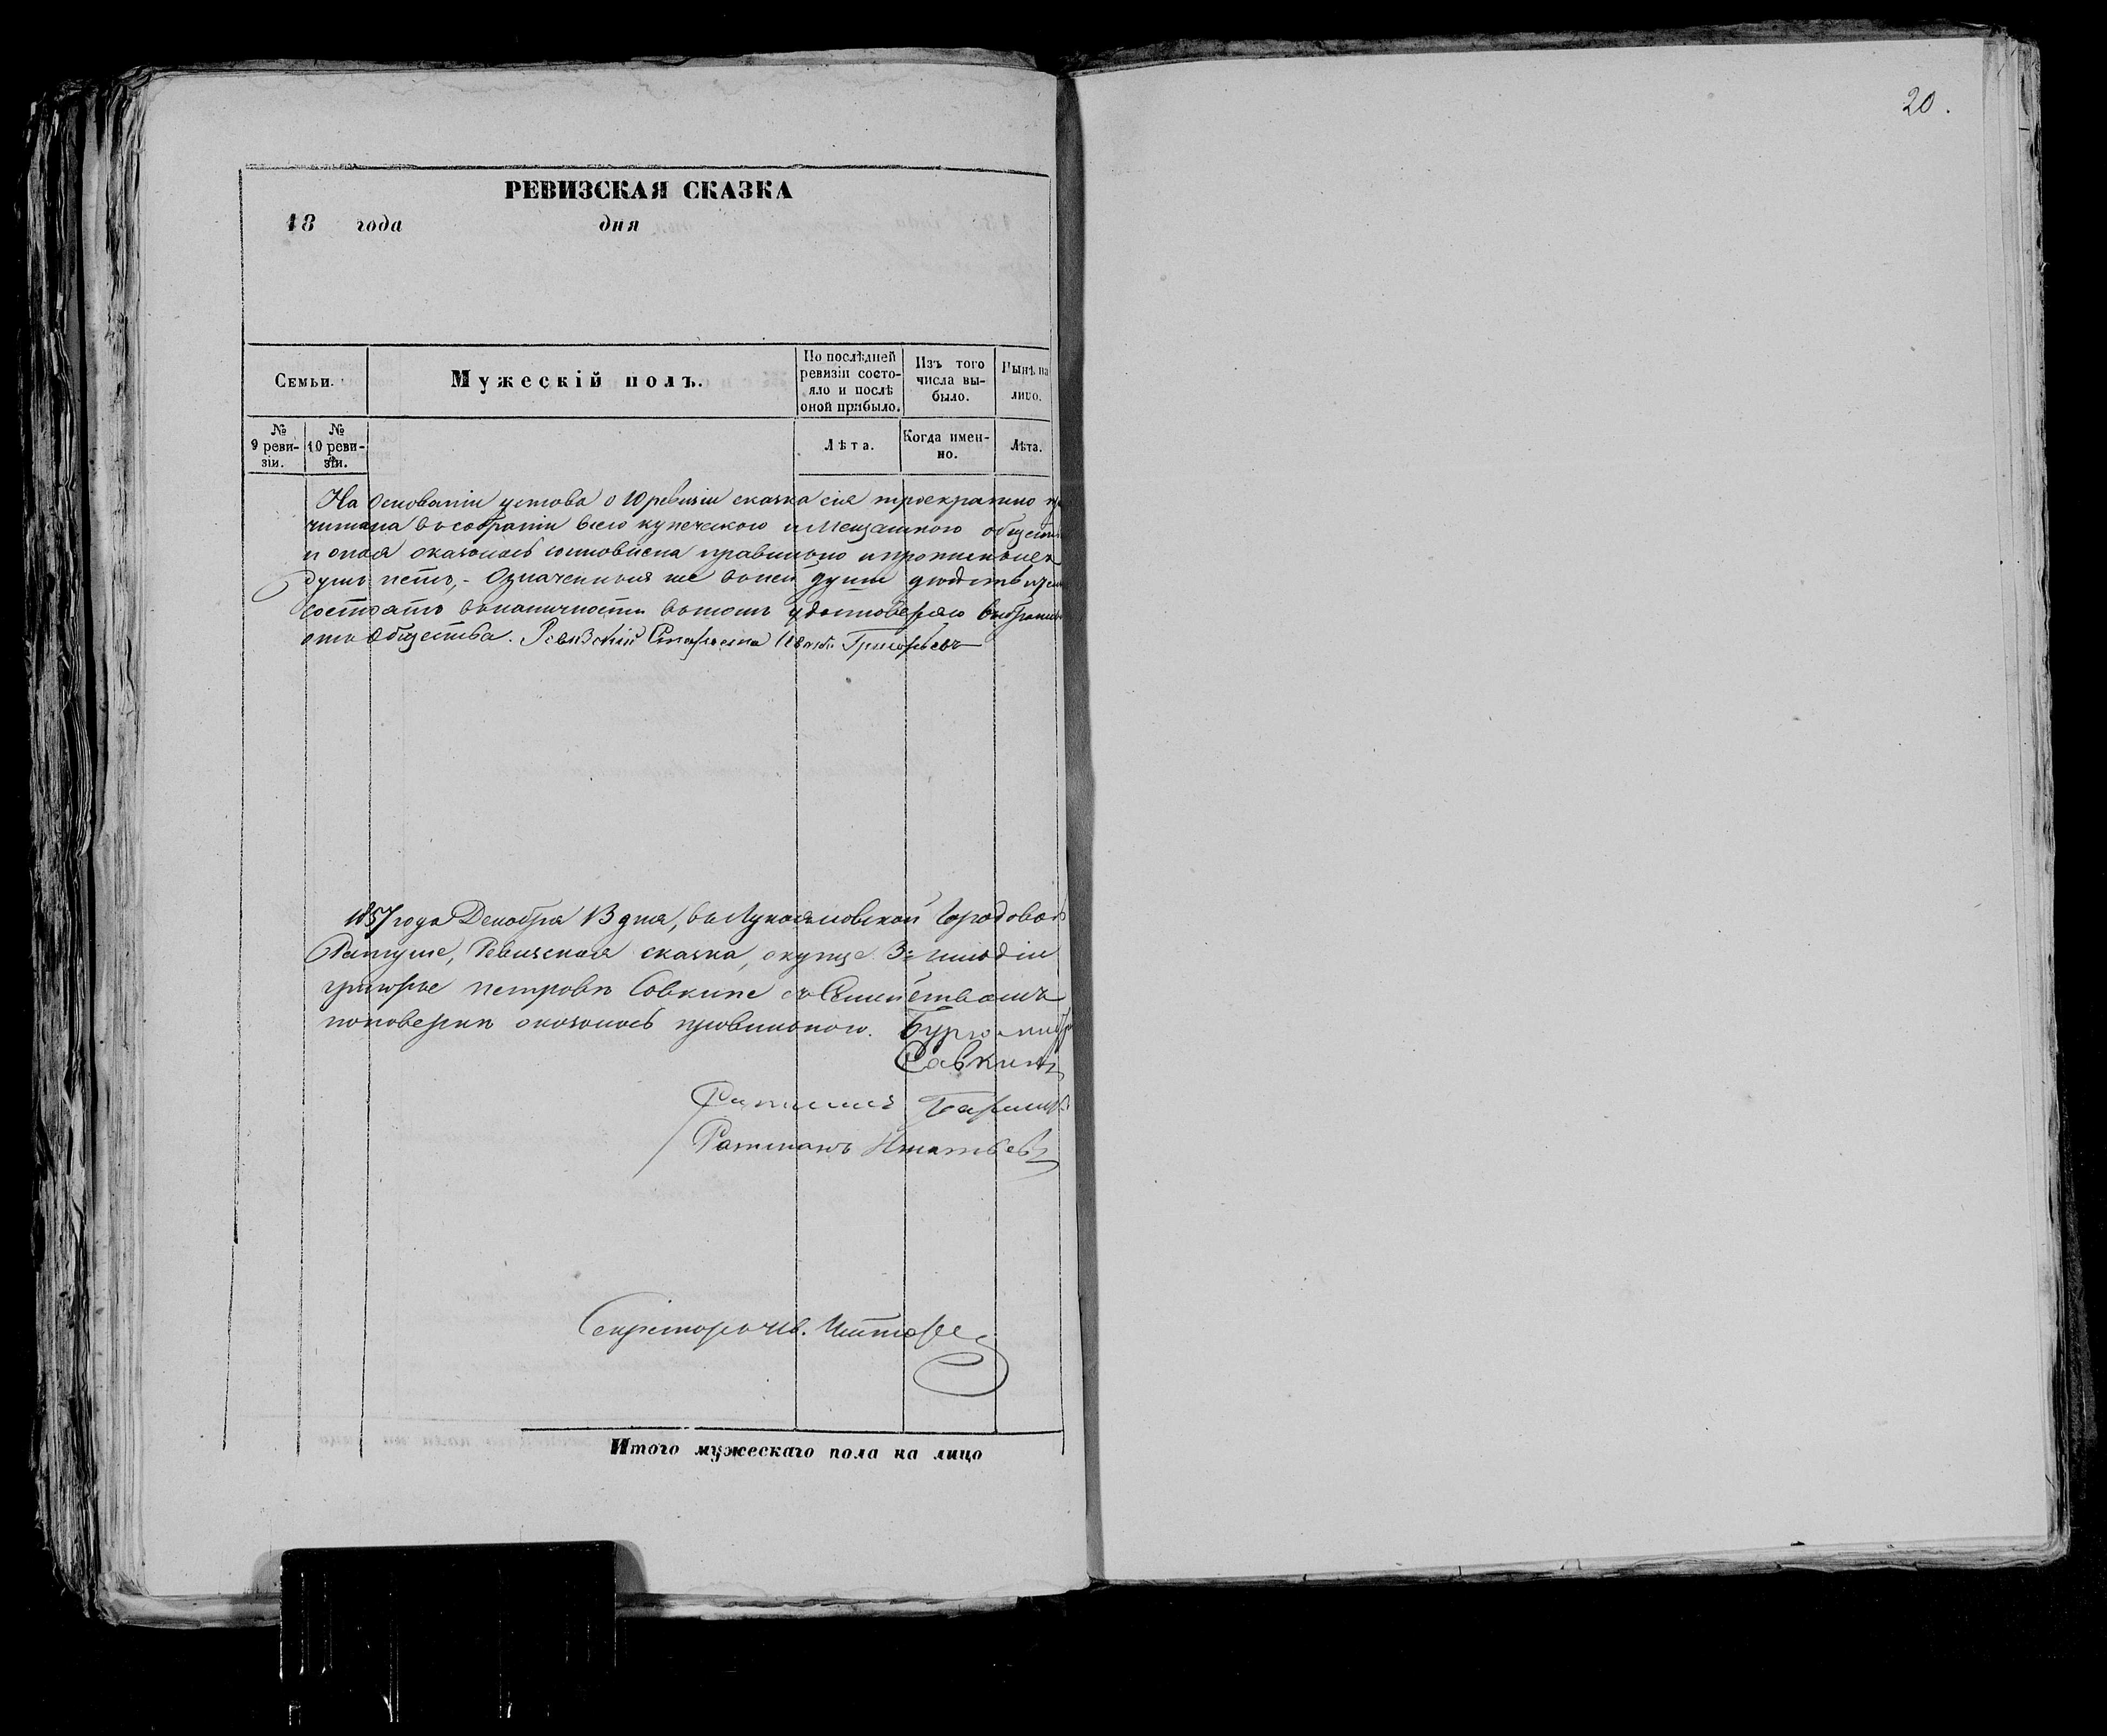 20.
РЕВИЗСКАЯ СКАЗКА
18 года дня
Семьи.
Мужескій полъ.
По послѣдней ревизіи состо-
яло и послѣ оной прибыло.
Изъ того числа вы-
было.
Нынѣ на лицо.
№ 9 реви-
зіи.
№ 10 реви-
зіи.
Лѣта.
Когда имен-
но.
Лѣта.
На основаніи устава о 10 ревизіи сказка сія троекратно
читана въ собраніи всего купеческаго и Мещанскаго
и оная оказалась правильно и
душъ нетъ,- Означенныя же въ ней души
состоятъ въ наличности въ томъ удостоверяю
отъ общества. Ревизский Староста Иванъ Григорьевъ
1857 года Декабря 13 дня, въ Лукояновской Городовой
Ратуше, Ревизская сказка, о купце 3й гильдіи
григорье петрове Савкине съ Семействомъ
поповерки оказалась правильною. Бургомистръ
Савкинъ
Ратманъ
Ратманъ Игнатьевъ
Секретарь
Итого мужескаго пола на лицо